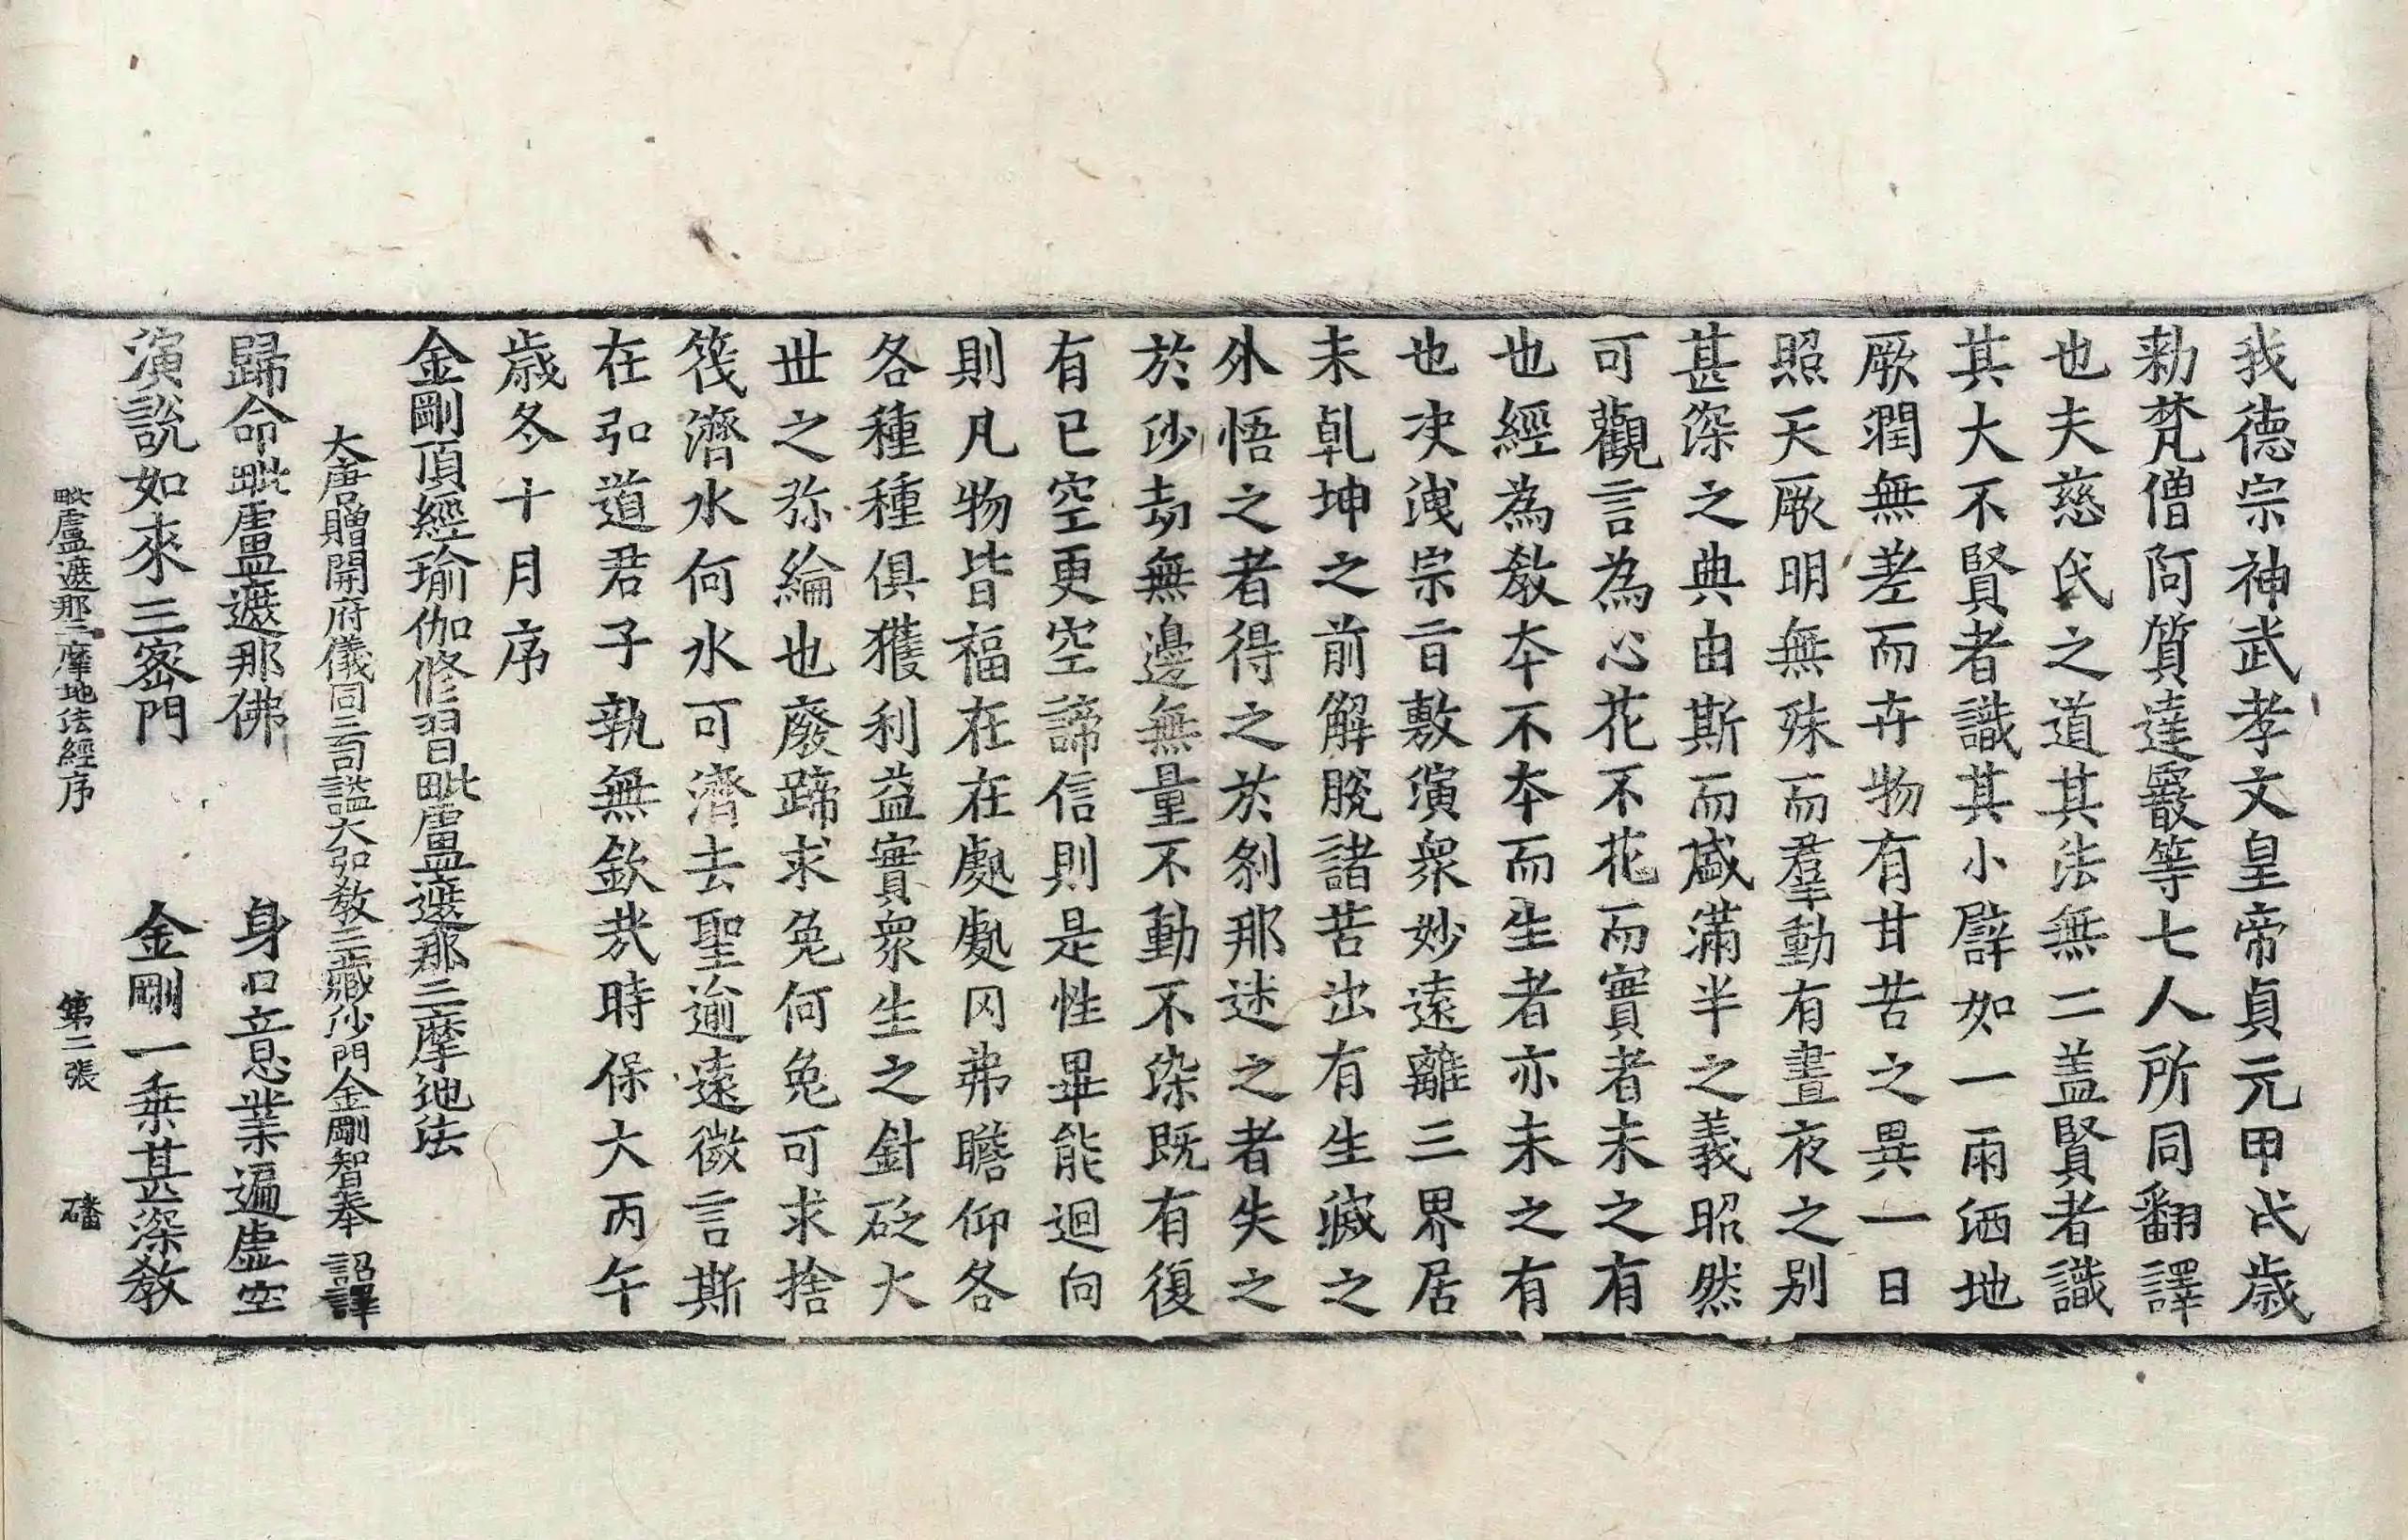 我德宗神武孝文皇帝貞元甲戌歲
勑梵僧阿質達霰等七人所同翻譯
也夫慈氏之道其法無二盖賢者識
其大不賢者識其小譬如一雨洒地
厥潤無差而卉物有甘苦之異一日
照天厥明無殊而羣動有晝夜之别
甚深之典由斯而盛滿半之義昭然
可觀言為心花不花而實者未之有
也經為教本不本而生者亦未之有
也决洩宗旨敷演衆妙遠離三界居
未乹坤之前解脫諸苦出有生滅之
外悟之者得之於剎那迷之者失之
於沙劫無邊無量不動不染既有復
有已空更空諦信則是性畢能迴向
則凡物皆福在在處處冈弗瞻仰各
各種種俱獲利益實衆生之針砭大
世之弥綸也廢蹄求兔何兔可求捨
筏濟水何水可濟去聖逾遠微言斯
在弘道君子孰無欽哉時保大丙午
歲冬十月序
金剛頂經瑜伽修習毗盧遮那三摩地法
大唐贈開府儀同三司謚大弘教三藏沙門金剛智奉 詔譯
歸命毗盧遮那佛 身口意業遍虛空
演說如來三密門 金剛一乗甚深教
毗盧遮那三摩地法經序 第二張 磻